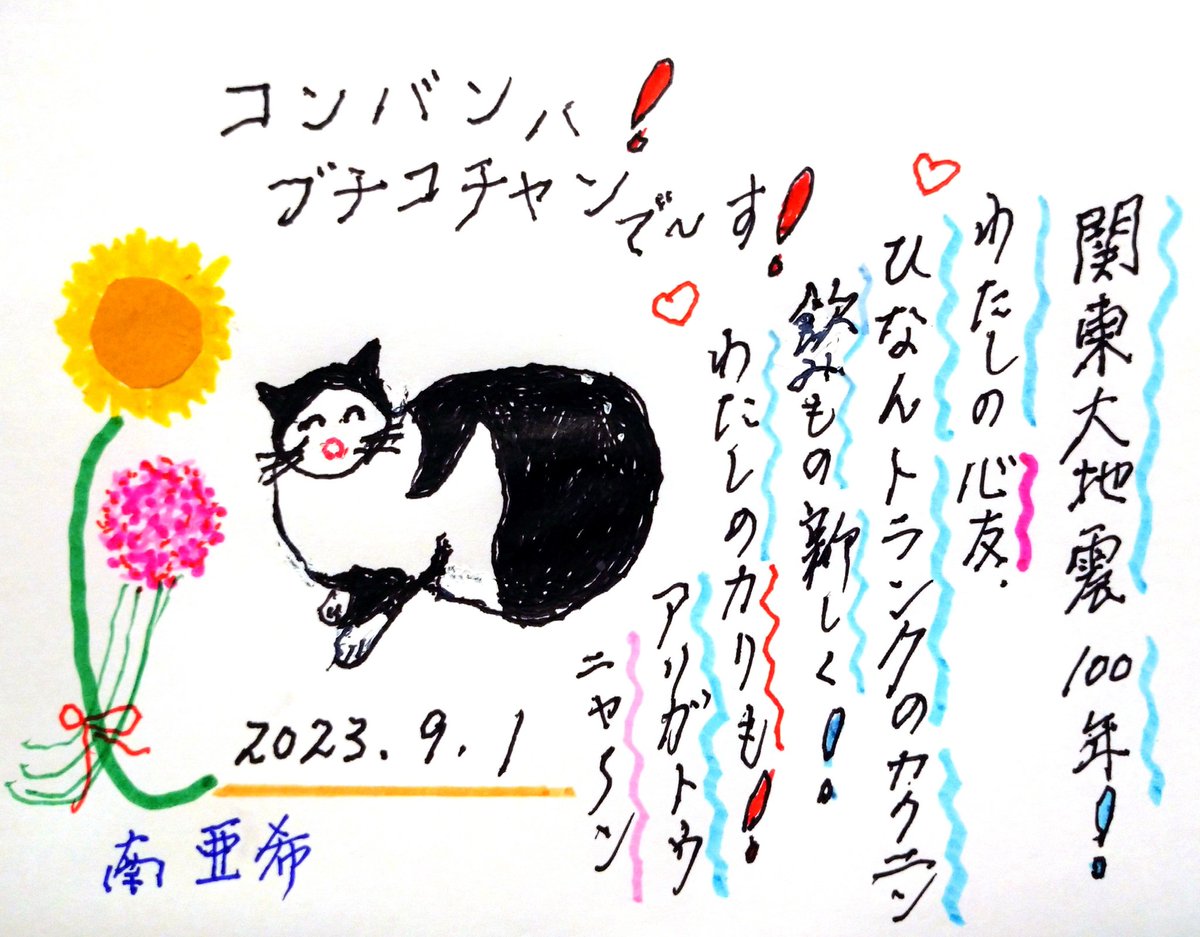 コンバンハ!
ブチコチャンで〜す!
関東大地震 100年!
わたしの心友.
ひなんトランクのカクニン
飲みもの新しく!
わたしのカリカリも!
アリガトウ
ニャ〜ン
2023.9.1
南 亜希